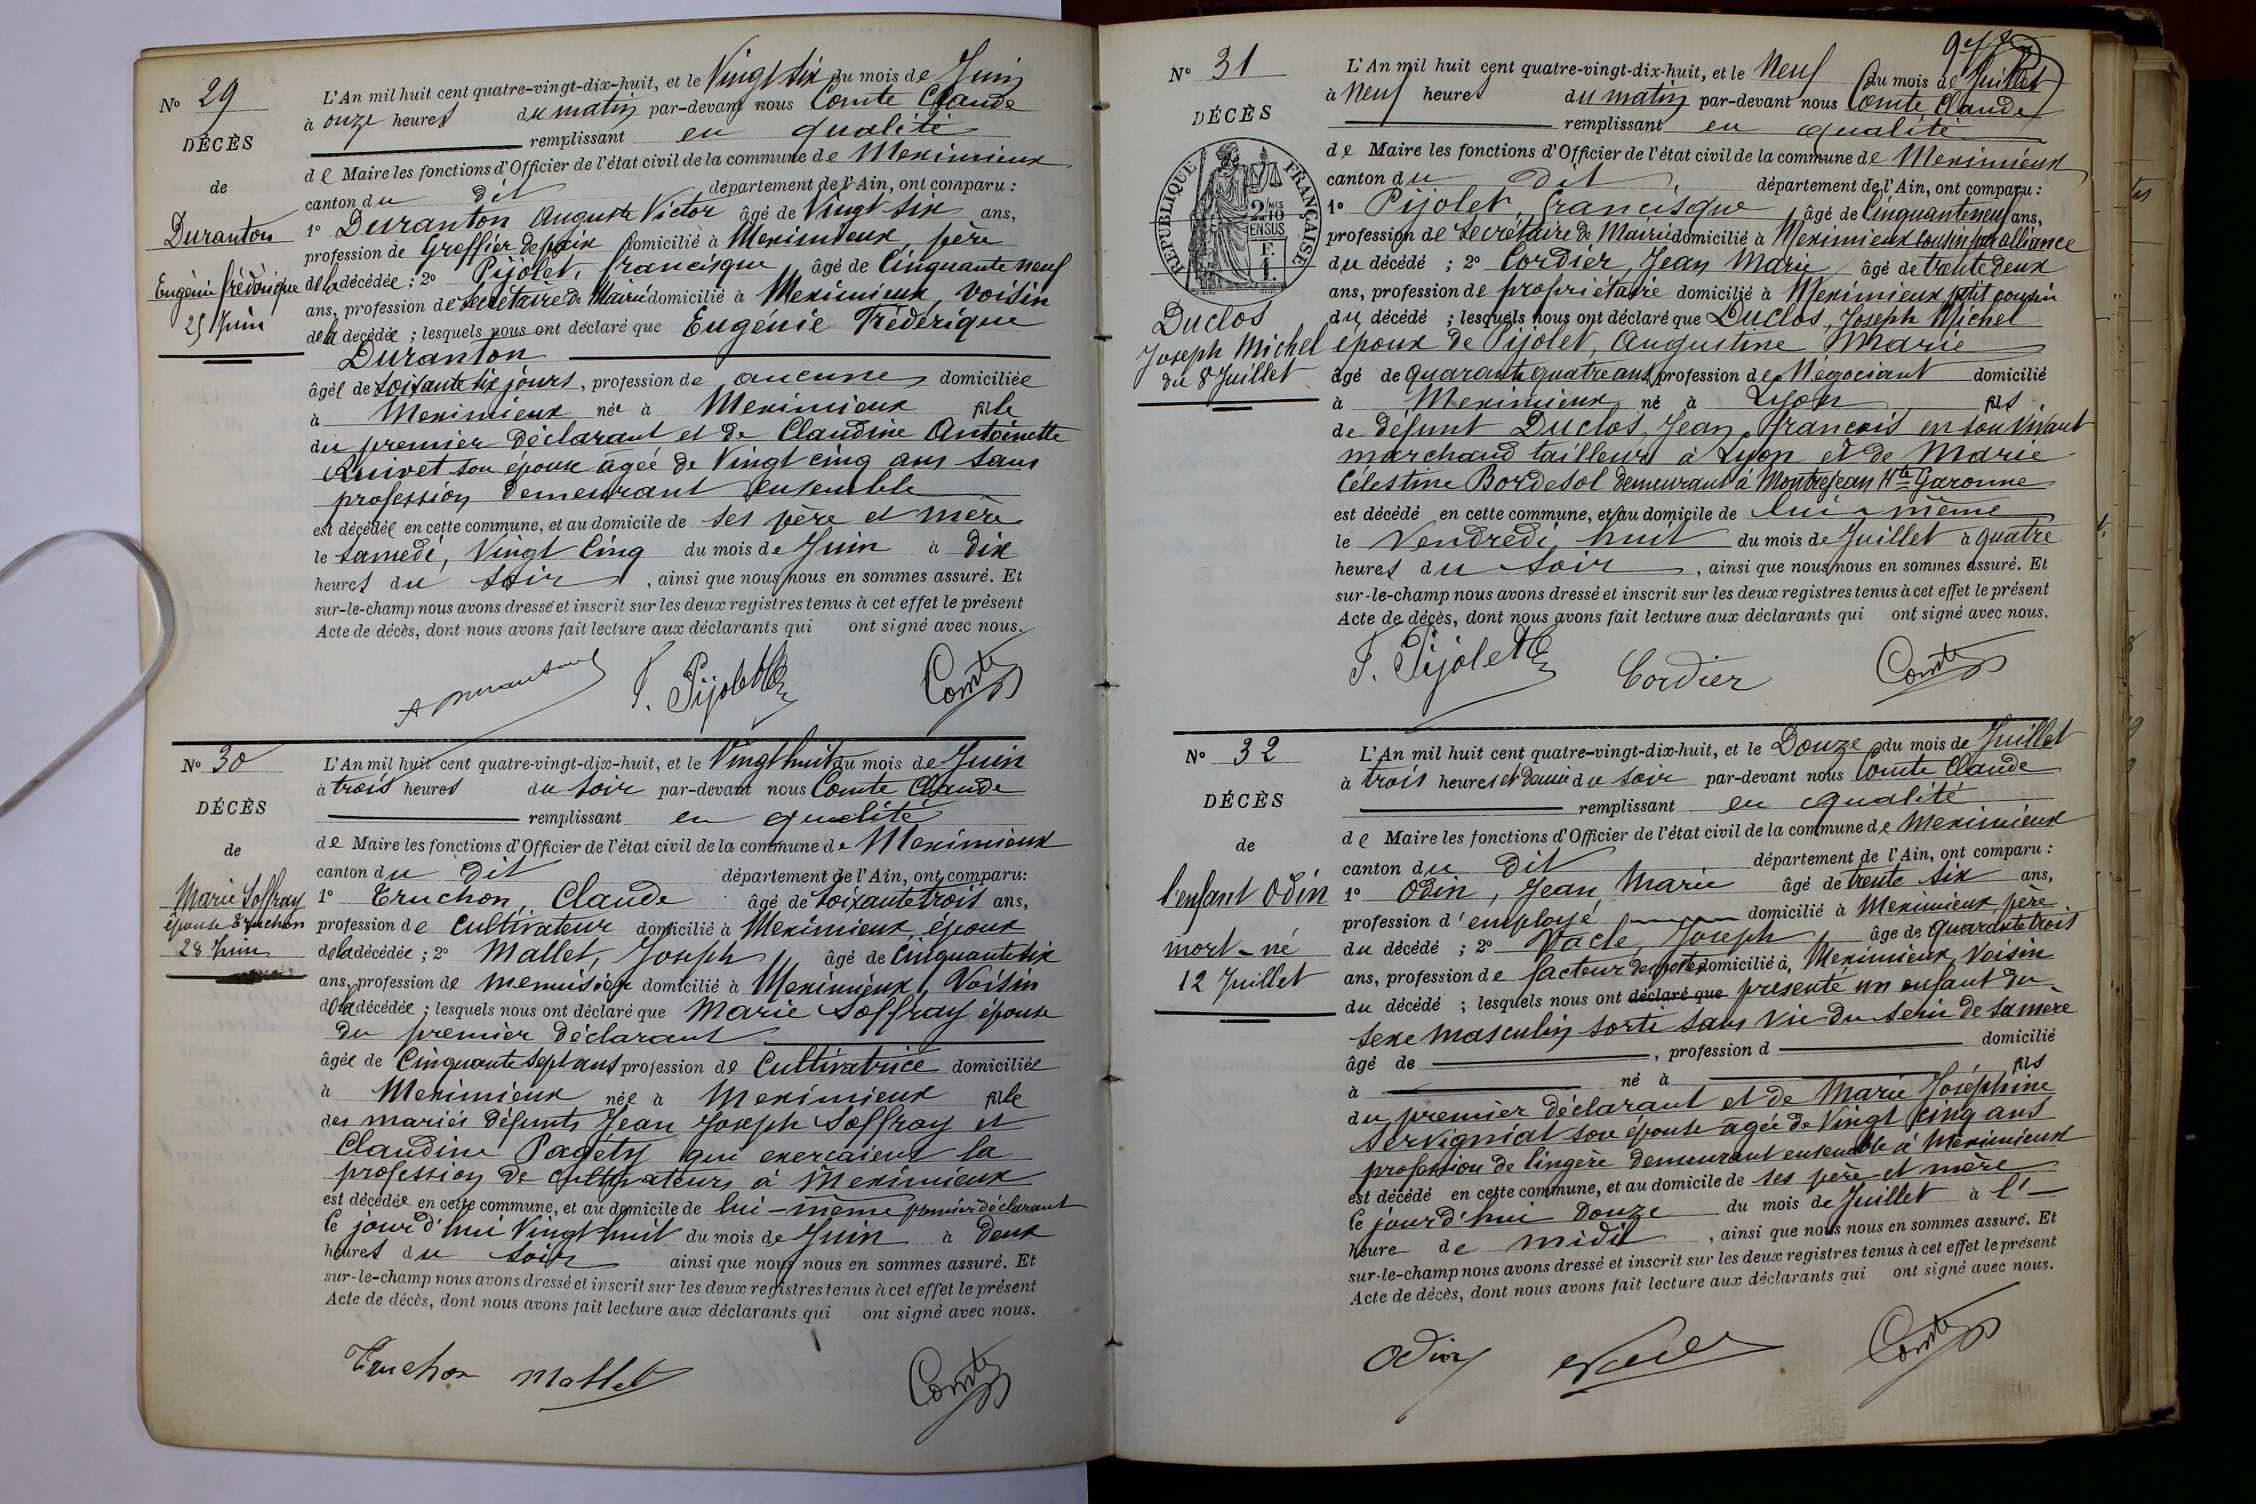 N° 29
DÉCÈS
de
Duranton
Eugénie Frédérique
25 Juin
L'An mil huit cent quatre-vingt-dix-huit, et le Vingt six du mois de Juin
à onze heures du matin par-devant nous Comte Claude
remplissant en qualité
de Maire les fonctions d'Officier de l'état civil de la commune de Meximieux
canton du dit département de l'Ain, ont comparu :
1° Duranton Auguste Victor âgé de Vingt six ans,
profession de Greffier de paix domicilié à Meximieux, père
de la décédée ; 2° Pijolet, francisque, âgé de Cinquante neuf
ans, profession de Secrétaire de Mairie domicilié à Meximieux, voisin
de la décédée ; lesquels nous ont déclaré que Eugénie Fréderique
Duranton
âgée de soixante six jours, profession de aucune domiciliée
à Meximieux née à Meximieux fille
du premier déclarant et de Claudine Antoinette
son épouse âgée de Vingt cinq ans sans
profession demeurant ensemble
est décédée en cette commune, et au domicile de ses père et mère
le samedi, Vingt Cinq du mois de Juin à dix
heures du soir, ainsi que nous nous en sommes assuré. Et
sur-le-champ nous avons dressé et inscrit sur les deux registres tenus à cet effet le présent
Acte de décès, dont nous avons fait lecture aux déclarants qui ont signé avec nous.
A Duranton F. Pijolet Comte
N° 30
DÉCÈS
de
Marie Soffray
épouse Truchon
28 Juin
L'An mil huit cent quatre-vingt-dix-huit, et le Vingt huit du mois de Juin
à trois heures du soir par-devant nous Comte Claude
remplissant en qualité
de Maire les fonctions d'Officier de l'état civil de la commune de Meximieux
canton du dit département de l'Ain, ont comparu:
1° Truchon, Claude âgé de Soixante trois ans,
profession de Cultivateur domicilié à Meximieux, époux
de la décédée ; 2° Mallet, Joseph, âgé de Cinquante six
ans, profession de menuisier domicilié à Meximieux, Voisin
de la décédée ; lesquels nous ont déclaré que Marie Soffray épouse
du premier déclarant
âgée de Cinquante sept ans profession de Cultivatrice domiciliée
à Meximieux née à Meximieux fille
des mariés défunts Jean Joseph Soffray et
Claudine Pagéty qui exerçaient la
profession de cultivateurs à Meximieux
est décédée en cette commune, et au domicile de lui-même premier déclarant
Ce jour d'hui Vingt huit du mois de Juin à deux
heures du soir ainsi que nous nous en sommes assuré. Et
sur-le-champ nous avons dressé et inscrit sur les deux registres tenus à cet effet le présent
Acte de décès, dont nous avons fait lecture aux déclarants qui ont signé avec nous.
Truchon Mallet Comte
N° 31
DÉCÈS
de
RÉPUBLIQUE FRANÇAISE
2/10MES
EN SUS
Duclos
Joseph Michel
du 8 Juillet
L'An mil huit cent quatre-vingt-dix-huit, et le Neuf du mois de Juillet
à Neuf heures du matin par-devant nous Comte Claude
remplissant en qualité
de Maire les fonctions d'Officier de l'état civil de la commune de Meximieux
canton du dit, département de l'Ain, ont comparu :
1° Pijolet, francisque, âgé de Cinquante neuf ans,
profession de Secrétaire de Mairie domicilié à Meximieux cousin par alliance
du décédé ; 2° Cordier, Jean Marie âgé de trente deux
ans, profession de propriétaire domicilié à Meximieux petit cousin
du décédé ; lesquels nous ont déclaré que Duclos, Joseph Michel
époux de Pijolet, Augustine Marie
âgé de quarante quatre ans, profession de Négociant domicilié
à Meximieux né à Lyon fils
de défunt Duclos, Jean françois en son vivant
marchand tailleurs à Lyon et de Marie
Célestine Bordesol demeurant à Montrejeau Hte Garonne
est décédé en cette commune, et au domicile de lui-même
le Vendredi, huit du mois de Juillet à quatre
heures du soir, ainsi que nous nous en sommes assuré. Et
sur-le-champ nous avons dressé et inscrit sur les deux registres tenus à cet effet le présent
Acte de décès, dont nous avons fait lecture aux déclarants qui ont signé avec nous.
F. Pijolet Cordier Comte
N° 32
DÉCÈS
de
l'enfant Odin
mort-né
12 Juillet
L'An mil huit cent quatre-vingt-dix-huit, et le Douze du mois de Juillet
à trois heures et demie du soir par-devant nous Comte Claude
remplissant en qualité
de Maire les fonctions d'Officier de l'état civil de la commune de Meximieux
canton du dit département de l'Ain, ont comparu :
1° Odin, Jean Marie âgé de trente six ans,
profession d'employé domicilié à Meximieux, père
du décédé ; 2° Vacle, Joseph, âgé de quarante trois
ans, profession de facteur des postes domicilié à Meximieux, Voisin
du décédé ; lesquels nous ont déclaré que présenté un enfant du
sexe masculin sorti sans vie du sein de sa mère
âgé de , profession d domicilié
à né à fils
du premier déclarant et de Marie Joséphine
Servigniat son épouse âgée de Vingt cinq ans
profession de lingère demeurant ensemble à Meximieux
est décédé en cette commune, et au domicile de ses père et mère
Ce jourd'hui Douze du mois de Juillet à l'
heure de midi, ainsi que nous nous en sommes assuré. Et
sur-le-champ nous avons dressé et inscrit sur les deux registres tenus à cet effet le présent
Acte de décès, dont nous avons fait lecture aux déclarants qui ont signé avec nous.
Odin Vacle Comte